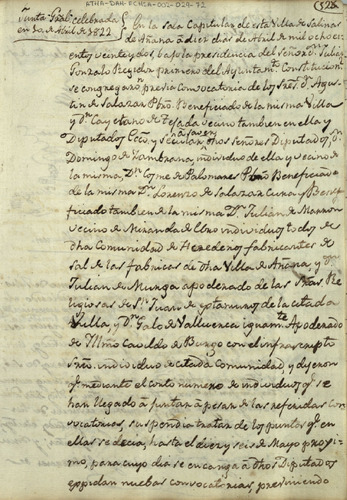 ATHA-DAH-ECHEA-002-024-72
522
Junta Gral. celebrada
en 10. de Abril de 1822
En la sala Capitular de esta Villa de Salinas
de Añana á diez dias de Abril de mil ochoci
entos veinte y dos, bajo la presidencia del Señor Dn.
Gonzalo Regidor primero del Ayuntamto. Constitucionl.
se congregaron previa convocatoria de los Sres. Dn. Agus
tin de Salazar Pbro. Beneficiado de la misma Villa
y Dn. Cayetano de Tejada vecino tambien en ella y
Diputados Ecco. y secular, á saver
otros Señores Diputados, Dn.
Domingo de Zambrana, individuo de ella y vecino de
la misma, Dn. Cosme de Palomares Pbro. Beneficia
do de la misma Dn. Lorenzo de Salazar Cura y Benefi
ficiado tambien de la misma Dn. Julián de Marron
vecino de Miranda de Ebro individuos todos de
dha Comunidad de Herederos fabricantes de
sal de las fabricas de dha Villa de Añana, y Dn.
Julian de Munga apoderado de las Sras. Re
ligiosas de Sn. Juan de la citada
Villa, y Dn. Galo de Valluerca igualmte. Apoderado
de Illmo Cavildo de Burgos con el infraescripto
Srio. individuo de citada comunidad, y dijeron
qe. mediante el corto numero de individuos qe. se
han llegado á juntar á pesar de las referidas con
vocatorias, suspendia tratar de los puntos qe. en
ellas se decia, hasta el diez y seis de Mayo proxi
mo, para cuyo dia se encarga á dhos Diputados
espidan nuebas convocatorias, previniendo